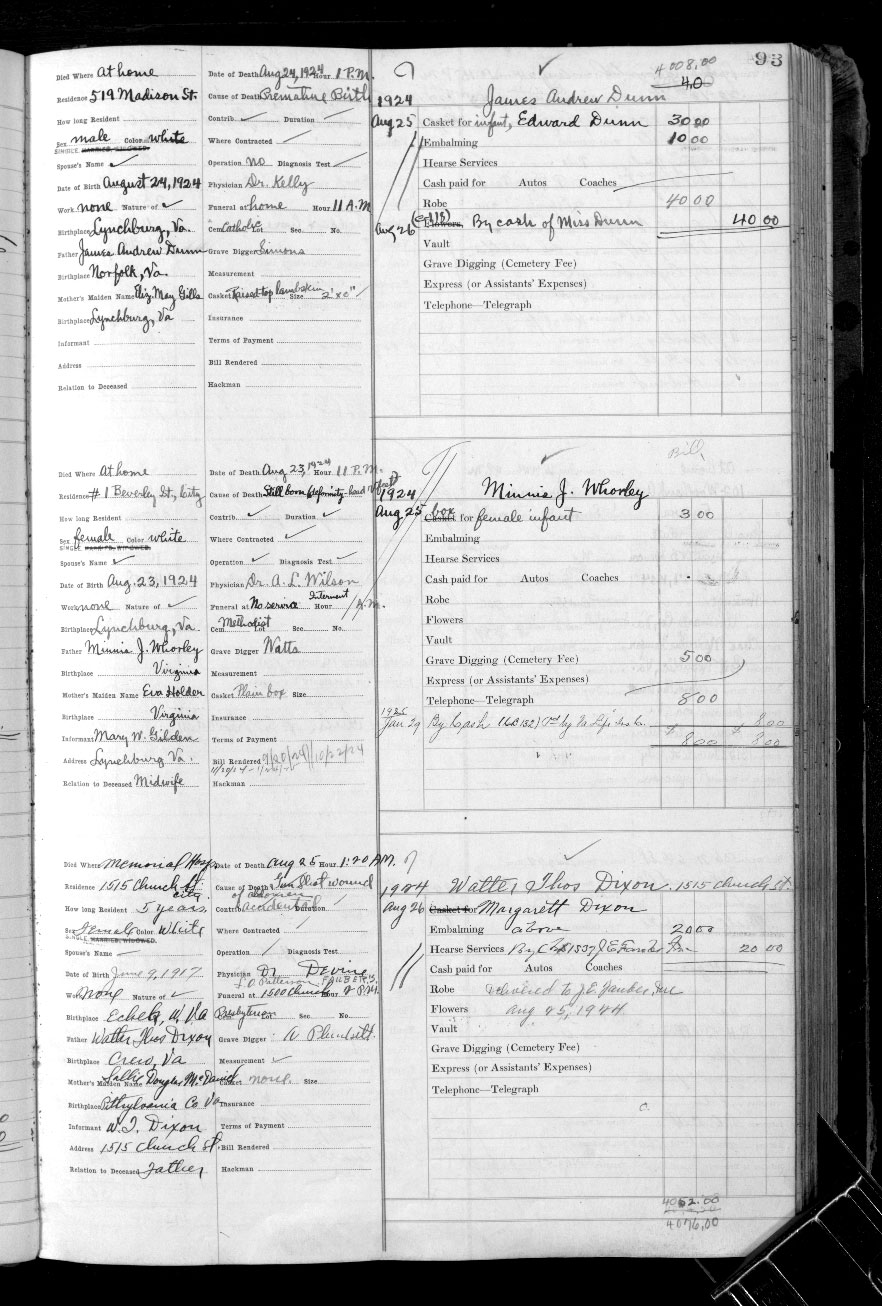 93
4008.00
40
Died Where At home
Residence 519 Madison St.
How long Resident
Sex male Color white
SINGLE, MARRIED, WIDOWED.
Spouse's Name ✓
Date of Birth August 24, 1924
Work none Nature of ✓
Birthplace Lynchburg, Va.
Father James Andrew Dunn
Birthplace Norfolk, Va.
Mother's Maiden Name Eliz. May Gills
Birthplace Lynchburg, Va
Informant
Address
Relation to Deceased
Date of Death Aug 24, 1924 Hour 1 P.M.
Cause of Death Premature Birth
Contrib. ✓ Duration
Where Contracted
Operation no Diagnosis Test
Physician Dr. Kelly
Funeral at home Hour 11 A.M
Cem Catholic Lot Sec. No.
Grave Digger Simons
Measurement
Casket Raised top lambskin Size 2'x0"
Insurance
Terms of Payment
Bill Rendered
Hackman
1924 James Andrew Dunn
Aug 25 Casket for infant, Edward Dunn 30 00
Embalming 10 00
Hearse Services
Cash paid for Autos Coaches
Robe 40 00
Aug 26 Flowers, By cash of Miss Dunn 40 00
Vault
Grave Digging (Cemetery Fee)
Express (or Assistants' Expenses)
Telephone—Telegraph
Died Where At home
Residence #1 Beverley St., City
How long Resident
Sex female Color white
SINGLE, MARRIED, WIDOWED.
Spouse's Name ✓
Date of Birth Aug. 23, 1924
Work none Nature of ✓
Birthplace Lynchburg, Va.
Father Minnis J. Whorley
Birthplace Virginia
Mother's Maiden Name Eva Holder
Birthplace Virginia
Informant Mary W. Gilden
Address Lynchburg Va.
Relation to Deceased Midwife
Date of Death Aug 23, 1924 Hour 11 P.M.
Cause of Death Still born (deformity-head
Contrib. ✓ Duration ✓
Where Contracted ✓
Operation ✓ Diagnosis Test ✓
Physician Dr. A. L. Wilson
Funeral at No service Interment Hour
Cem. Methodist Lot Sec. No.
Grave Digger Watts
Measurement
Casket Plain box Size
Insurance
Terms of Payment
Bill Rendered 9/20/24 10/22/24
Hackman
Bill
1924 Minnis J. Whorley
Aug 25 box Casket for female infant 3 00
Embalming
Hearse Services
Cash paid for Autos Coaches
Robe
Flowers
Vault
Grave Digging (Cemetery Fee) 5 00
Express (or Assistants' Expenses)
Telephone—Telegraph 8 00
1925
Jan 29 By Cash by Va Life Ins Co. 8 00
8 00 8 00
Died Where Memorial Hosp.
Residence 1515 Church St. city
How long Resident 5 years
Sex Female Color White
SINGLE, MARRIED, WIDOWED.
Spouse's Name
Date of Birth June 9, 1917
Work None Nature of ✓
Birthplace Eckels, W. Va
Father Walter Thos Dixon
Birthplace Crew, Va
Mother's Maiden Name Sallie Douglas McDaniel
Birthplace Pittsylvania Co Va
Informant W. T. Dixon
Address 1515 Church St.
Relation to Deceased Father
Date of Death Aug 25 Hour 1:20 A.M.
Cause of Death Gun Shot wound
of abdomen
Contrib. accidental Duration
Where Contracted
Operation Diagnosis Test
Physician Dr. Devine
Funeral at 1500 Church Hour 2 P.M.
Cem Presbyterian Lot Sec. No.
Grave Digger
Measurement ✓
Casket none Size
Insurance
Terms of Payment
Bill Rendered
Hackman
1924 Walter Thos Dixon. 1515 Church St.
Aug 26 Casket for Margarett Dixon
Embalming above 20 00
Hearse Services 20 00
Cash paid for Autos Coaches
Robe Delivered to
Flowers Aug 25, 1944
Vault
Grave Digging (Cemetery Fee)
Express (or Assistants' Expenses)
Telephone—Telegraph
4052.00
4076.00